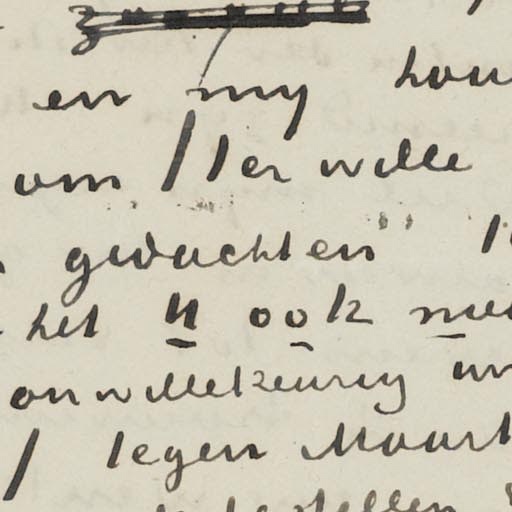 en my hou
om / ter wille
gedachten"
het U ook nie
onwillekeurig
/ tegen Maart